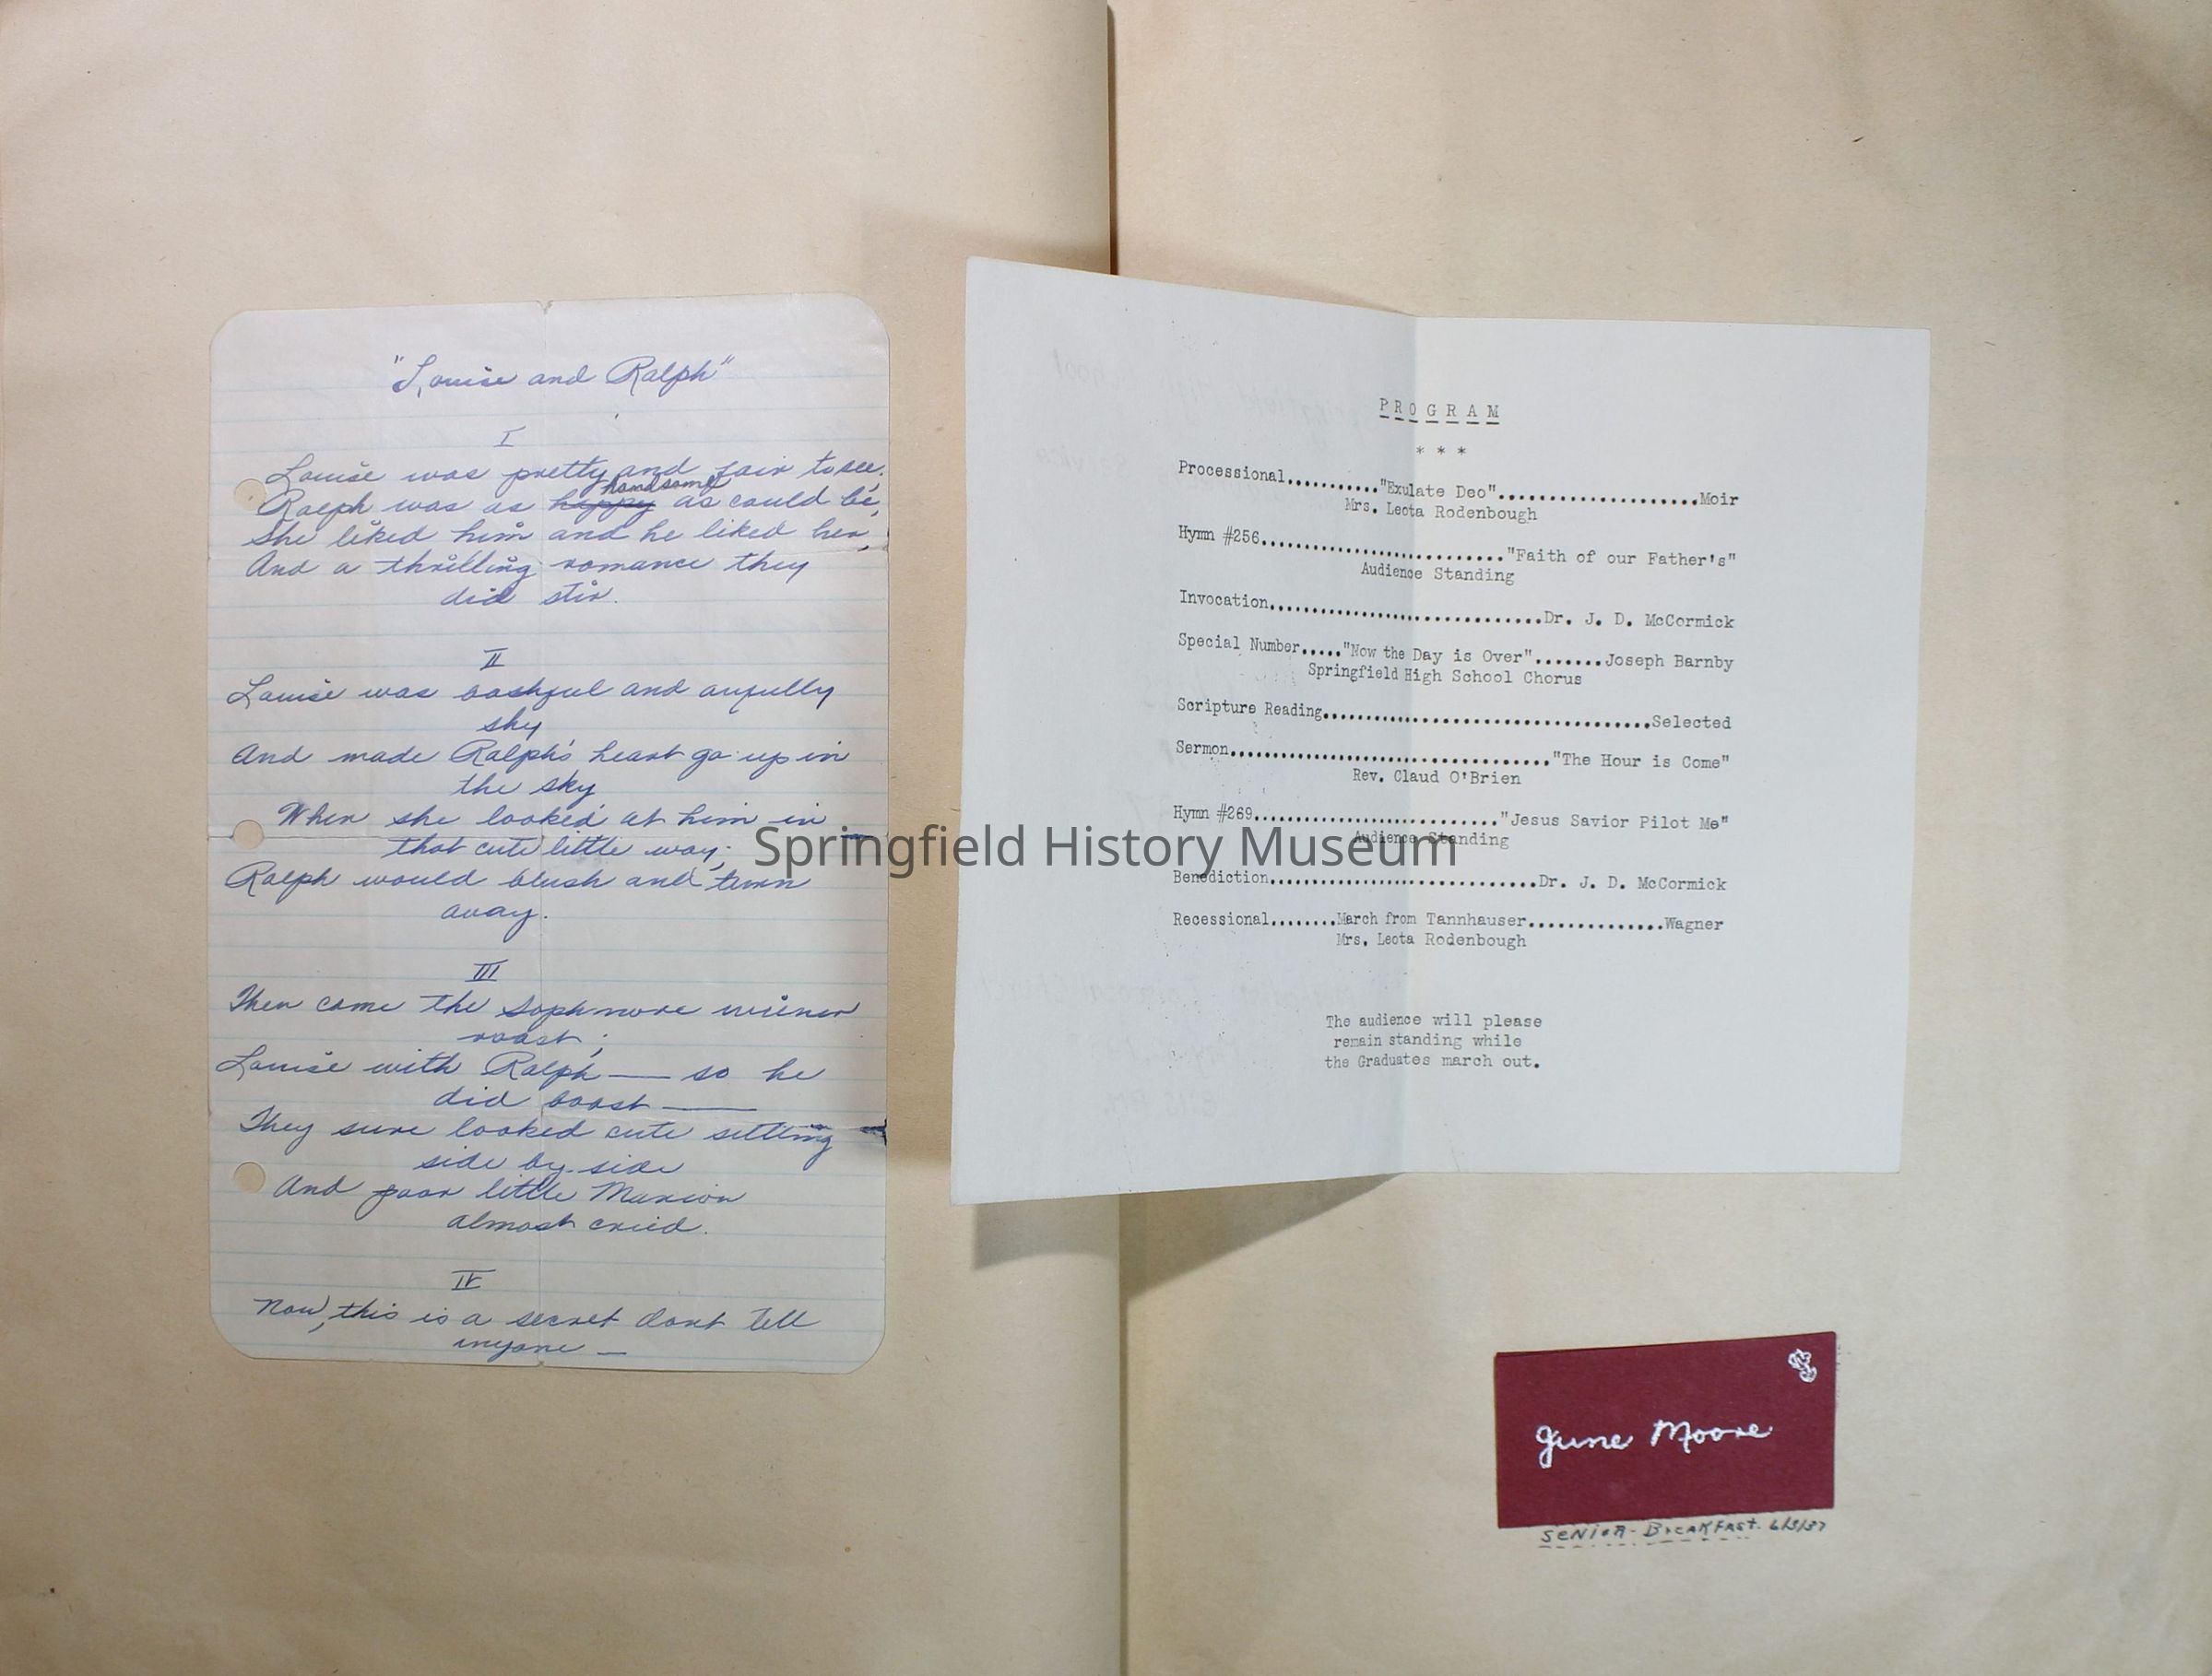 "Louise and Ralph"
I
Louise was pretty and fair to see.
handsome
Ralph was as happy as could be,
She liked him and he liked her,
And a thrilling romance they
did stir.
II
Louise was bashful and awfully
shy
And made Ralph's heart go up in
the sky
When she looked at him in
that cute little way;
Ralph would blush and turn
away.
III
Then came the sophmore wiener
roast;
Louise with Ralph — so he
did boast —
They sure looked cute setting
side by side
And poor little Marion
almost cried.
IV
Now, this is a secret dont tell
anyone —
PROGRAM
* * *
Processional..........."Exulate Deo".....................Moir
Mrs. Leota Rodenbough
Hymn #256.............................."Faith of our Father's"
Audience Standing
Invocation..................................Dr. J. D. McCormick
Special Number....."Now the Day is Over".......Joseph Barnby
Springfield High School Chorus
Scripture Reading.........................................Selected
Sermon........................................"The Hour is Come"
Rev. Claud O'Brien
Hymn #269.............................."Jesus Savior Pilot Me"
Audience Standing
Benediction.................................Dr. J. D. McCormick
Recessional........March from Tannhauser..............Wagner
Mrs. Leota Rodenbough
The audience will please
remain standing while
the Graduates march out.
Springfield History Museum
June Moore
SENIOR-BreakFast. 6/3/37